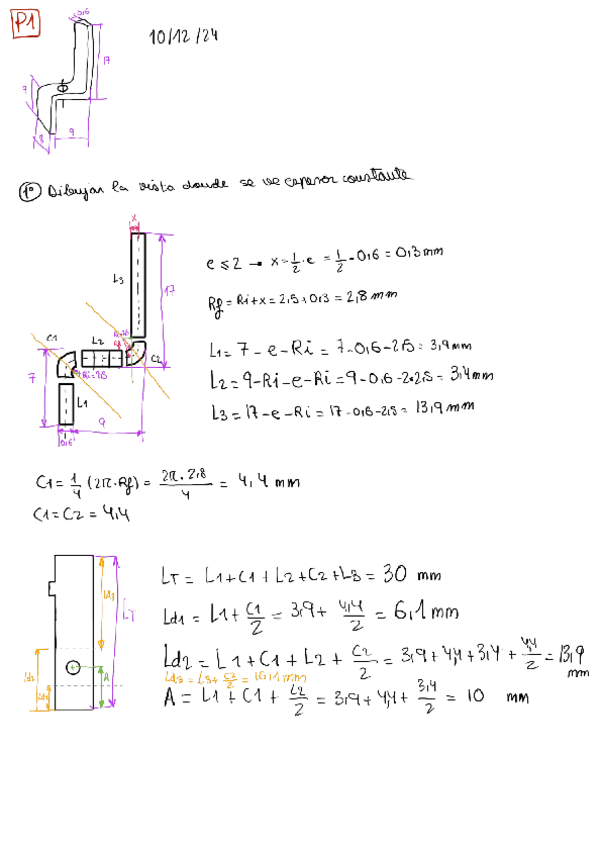 P1
10/12/24
0,6
17
7
8
9
1º Dibujar la vista donde se ve espesor constante
x
e ≤ 2 → x = 1/2 · e = 1/2 · 0,6 = 0,3 mm
L3
17
Rf = Ri + x = 2,5 + 0,3 = 2,8 mm
C1
L2
C2
L1 = 7 - e - Ri = 7 - 0,6 - 2,5 = 3,9 mm
7
Ri=2,5
L2 = 9 - Ri - e - Ri = 9 - 0,6 - 2·2,5 = 3,4 mm
L1
9
L3 = 17 - e - Ri = 17 - 0,6 - 2,5 = 13,9 mm
0,6
C1 = 1/4 (2π · Rf) = 2π · 2,8 / 4 = 4,4 mm
C1 = C2 = 4,4
LT = L1 + C1 + L2 + C2 + L3 = 30 mm
Ld3
LT
Ld1 = L1 + C1/2 = 3,9 + 4,4/2 = 6,1 mm
Ld2 = L1 + C1 + L2 + C2/2 = 3,9 + 4,4 + 3,4 + 4,4/2 = 13,9 mm
Ld3 = L3 + C2/2 = 16,1 mm
Ld2
A
Ld1
A = L1 + C1 + L2/2 = 3,9 + 4,4 + 3,4/2 = 10 mm